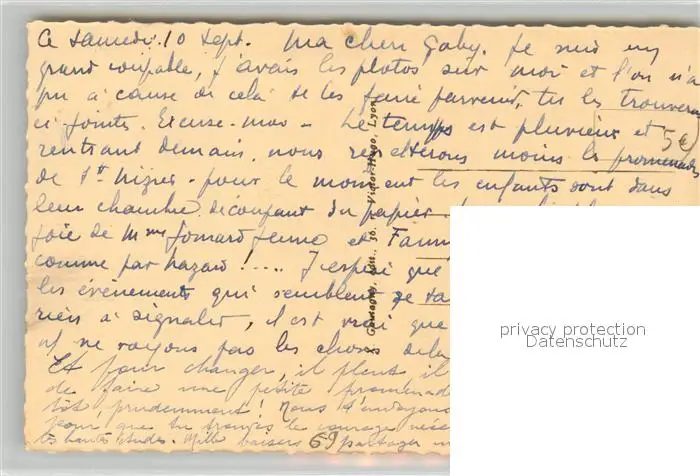 Ce samedi 10 sept. Ma chère Gaby. Je suis un
grand coupable, j'avais les photos sur moi et l'on n'a
pu à cause de cela te les faire parvenir, tu les trouveras
ci jointes. Excuse-moi - Le temps est pluvieux et
rentrant demain, nous regretterons moins les promenades
de St - pour le moment les enfants sont dans
leur chambre découpant du papier
joie de Mme et
comme par hazard !.... J'espère que
les événements qui semblent se
rien à signaler, il est vrai que
ne voyons pas les choses de la
Et pour changer, il pleut il
de faire une petite promenade
tôt, prudemment ! Nous t'envoyons
pour que tu trouves le courage
les hautes études. Mille baisers partager
5€
69
privacy protection
Datenschutz